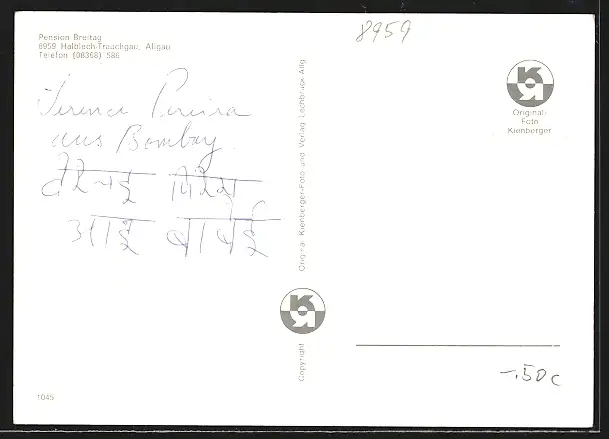 Pension Breitag
8959 Halblech-Trauchgau, Allgäu
Telefon (08368) 586
8959
Terence Pereira
aus Bombay.
आई बांबेई
Original-
Foto
Kienberger
Original Kienberger-Foto und Verlag Lechbruck-Allg
Copyright
-.50 c
1045